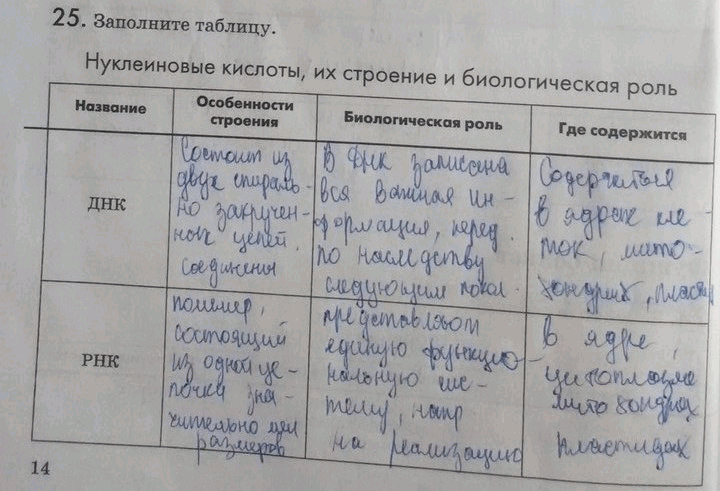 25. Заполните таблицу.
Нуклеиновые кислоты, их строение и биологическая роль
Название
Особенности
строения
Биологическая роль
Где содержится
ДНК
Состоит из
двух спираль-
но закручен-
ных цепей.
соединены
В ДНК записана
вся важная ин-
формация, перед.
по наследству
следующим покол-
Содержится
в ядрах кле-
ток, мито-
хондрих, пластид
РНК
полимер,
состоящий
из одной це-
почка зна-
чительно мен
размеров
представляют
единую функцио-
нальную сис-
тему, напр
на реализацию
в ядре,
цитоплазме
митохондрах
пластидах
14